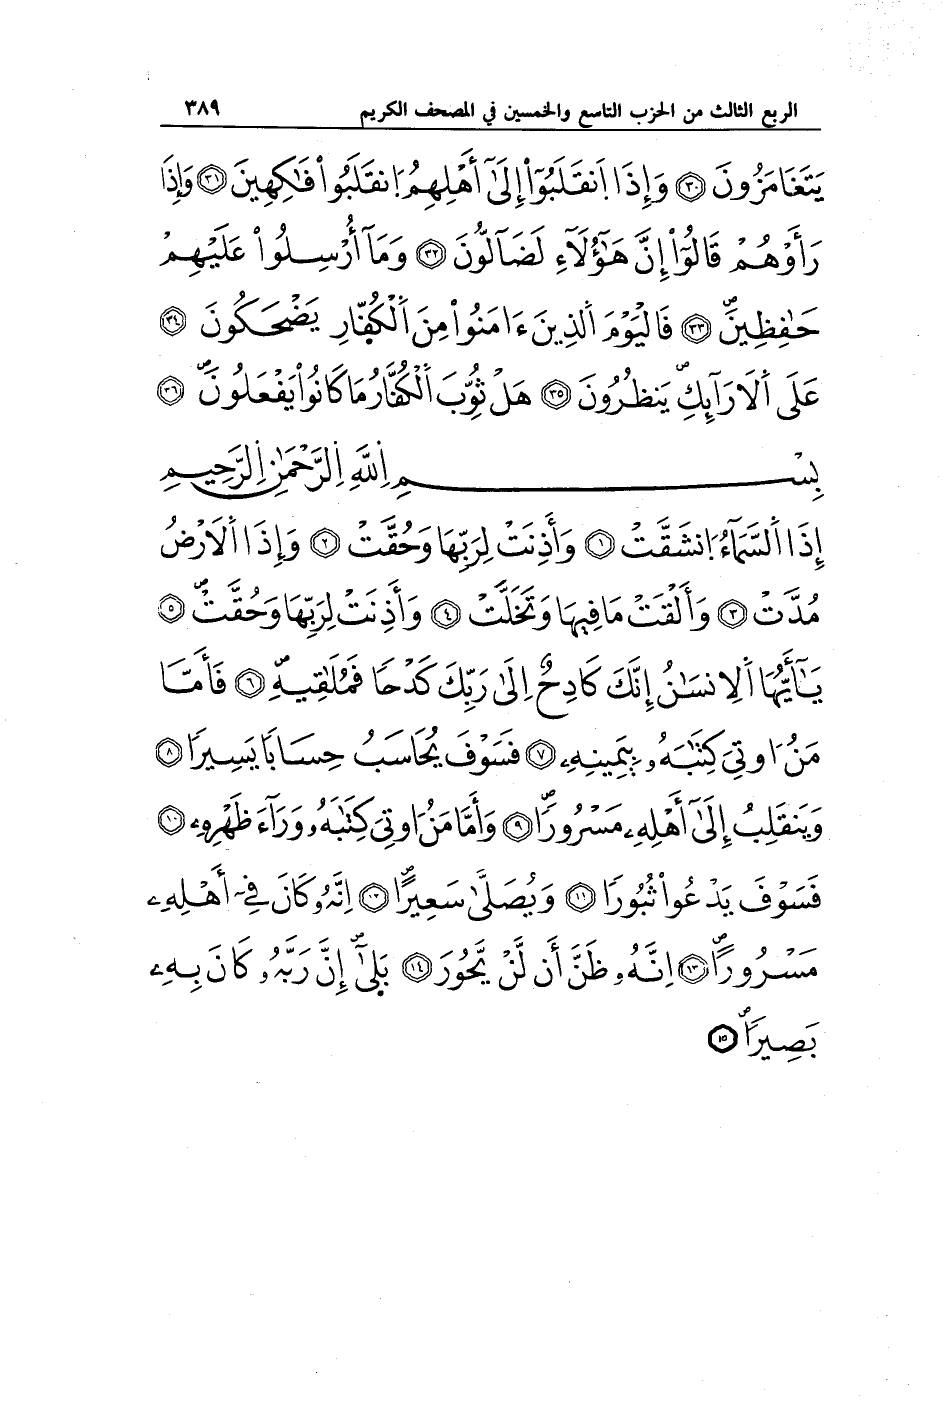 الربع الثالث من الحزب التاسع والخمسين في المصحف الكريم ٣٨٩
يَتَغَامَزُونَ ٣٠ وَإِذَا اَنقَلَبُوٓاْ إِلَىٰٓ أَهْلِهِمُ اُنقَلَبُواْ فَٰكِهِينَ ٣١ وَإِذَا
رَأَوْهُمْ قَالُوٓاْ إِنَّ هَٰٓؤُلَآءِ لَضَآلُّونَ ٣٢ وَمَآ أُرْسِلُواْ عَلَيْهِمْ
حَٰفِظِينَ ٣٣ فَالْيَوْمَ اَلذِينَ ءَامَنُواْ مِنَ اَلْكُفّ۪ارِ يَضْحَكُونَ ٣٤
عَلَى اَلَارَآئِكِ يَنظُرُونَ ٣٥ هَلْ ثُوِّبَ اَلْكُفَّارُ مَا كَانُواْ يَفْعَلُونَ ٣٦
بِسْمِ اِللَّهِ اِلرَّحْمَٰنِ اِلرَّحِيمِ
إِذَا اَلسَّمَآءُ اُنشَقَّتْ ١ وَأَذِنَتْ لِرَبِّهَا وَحُقَّتْ ٢ وَإِذَا اَلَارْضُ
مُدَّتْ ٣ وَأَلْقَتْ مَا فِيهَا وَتَخَلَّتْ ٤ وَأَذِنَتْ لِرَبِّهَا وَحُقَّتْ ٥
يَٰٓأَيُّهَا اَلِانسَٰنُ إِنَّكَ كَادِحٌ اِلَىٰ رَبِّكَ كَدْحاً فَمُلَٰقِيهِ ٦ فَأَمَّا
مَنُ ا۟وتِيَ كِتَٰبَهُۥ بِيَمِينِهِۦ ٧ فَسَوْفَ يُحَاسَبُ حِسَاباً يَسِيراً ٨
وَيَنقَلِبُ إِلَىٰٓ أَهْلِهِۦ مَسْرُوراً ٩ وَأَمَّا مَنُ ا۟وتِيَ كِتَٰبَهُۥ وَرَآءَ ظَهْرِهِۦ ١٠
فَسَوْفَ يَدْعُواْ ثُبُوراً ١١ وَيُصَلَّىٰ سَعِيراً ١٢ اِنَّهُۥ كَانَ فِےٓ أَهْلِهِۦ
مَسْرُوراً ١٣ اِنَّهُۥ ظَنَّ أَن لَّنْ يَّحُورَ ١٤ بَلَىٰٓ إِنَّ رَبَّهُۥ كَانَ بِهِۦ
بَصِيراً ١٥